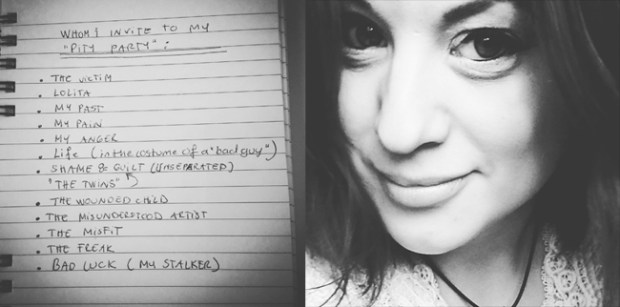 WHOM I INVITE TO MY
"PITY PARTY":
• THE VICTIM
• LOLITA
• MY PAST
• MY PAIN
• MY ANGER
• Life (in the costume of a "bad guy")
• SHAME & GUILT (UNSEPARATED)
"THE TWINS"
• THE WOUNDED CHILD
• THE MISUNDERSTOOD ARTIST
• THE MISFIT
• THE FREAK
• BAD LUCK (MY STALKER)